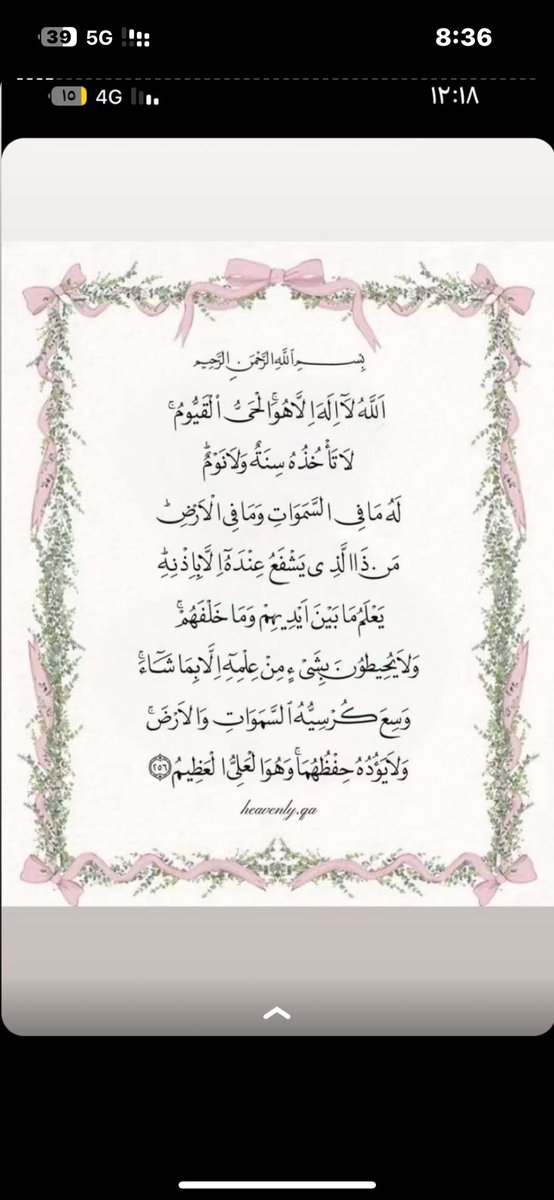 39 5G 8:36
١٥ 4G ١٢:١٨
بِسْمِ اللَّهِ الرَّحْمَنِ الرَّحِيمِ
اَللَّهُ لَآ اِلَهَ اِلَّا هُوَۚ اَلْحَىُّ الْقَيُّومُۚ
لَا تَأْخُذُهُ سِنَةٌ وَلَا نَوْمٌۜ
لَهُ مَا فِى السَّمَوَاتِ وَمَا فِى الْاَرْضِۜ
مَنْ ذَا الَّذِى يَشْفَعُ عِنْدَهُٓ اِلَّا بِاِذْنِهِۜ
يَعْلَمُ مَا بَيْنَ اَيْدِيهِمْ وَمَا خَلْفَهُمْۚ
وَلَا يُحِيطُونَ بِشَىْءٍ مِنْ عِلْمِهِٓ اِلَّا بِمَا شَآءَۚ
وَسِعَ كُرْسِيُّهُ السَّمَوَاتِ وَالْاَرْضَۚ
وَلَا يَؤُدُهُ حِفْظُهُمَاۚ وَهُوَ الْعَلِىُّ الْعَظِيمُ ﴿٢٥٦﴾
heavenly.qa